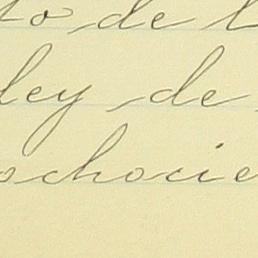 to de l
ley de
ochocie